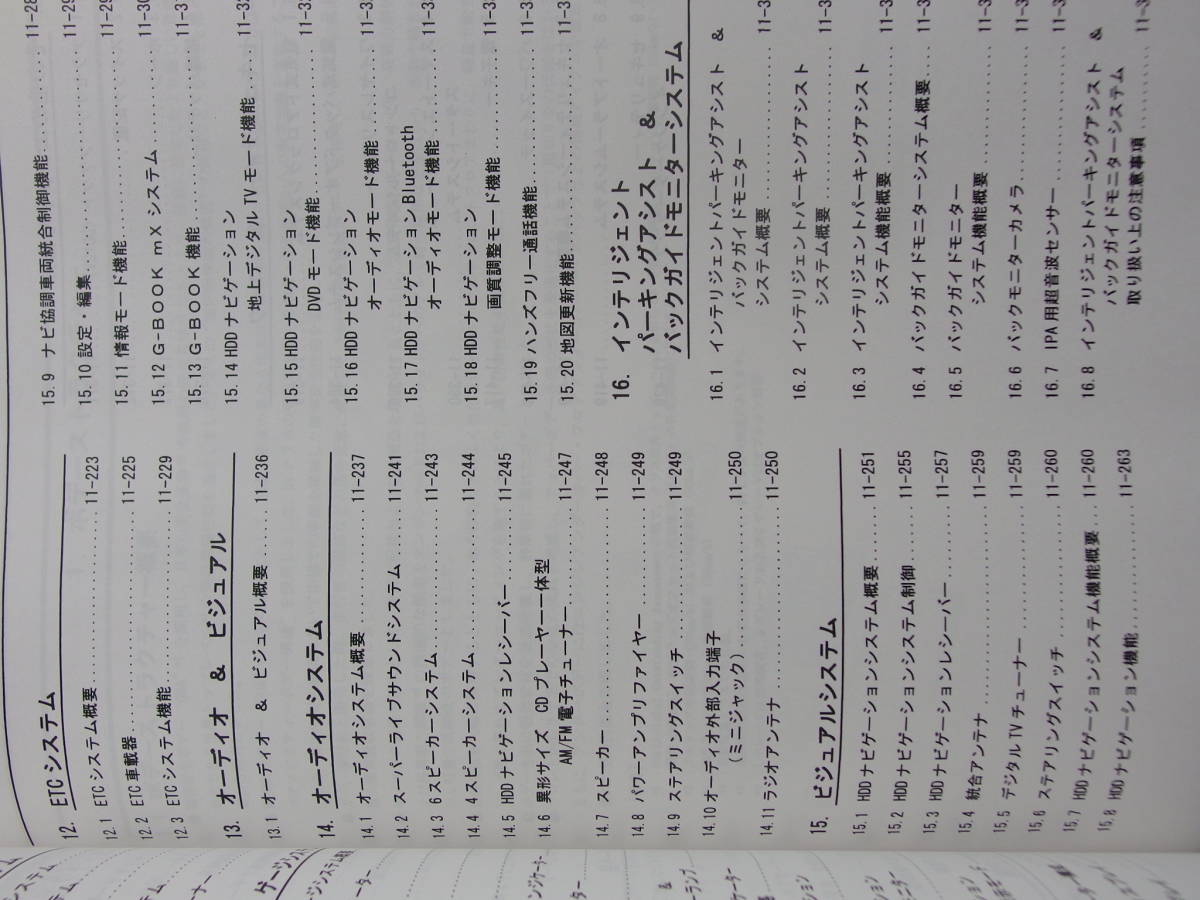 12. ETCシステム
12.1 ETCシステム概要 11-223
12.2 ETC車載器 11-225
12.3 ETCシステム機能 11-229
13. オーディオ & ビジュアル
13.1 オーディオ & ビジュアル概要 11-236
14. オーディオシステム
14.1 オーディオシステム概要 11-237
14.2 スーパーライブサウンドシステム 11-241
14.3 6スピーカーシステム 11-243
14.4 4スピーカーシステム 11-244
14.5 HDDナビゲーションレシーバー 11-245
14.6 異形サイズ CDプレーヤー一体型
AM/FM電子チューナー 11-247
14.7 スピーカー 11-248
14.8 パワーアンプリファイヤー 11-249
14.9 ステアリングスイッチ 11-249
14.10 オーディオ外部入力端子
(ミニジャック) 11-250
14.11 ラジオアンテナ 11-250
15. ビジュアルシステム
15.1 HDDナビゲーションシステム概要 11-251
15.2 HDDナビゲーションシステム制御 11-255
15.3 HDDナビゲーションレシーバー 11-257
15.4 統合アンテナ 11-259
15.5 デジタルTVチューナー 11-259
15.6 ステアリングスイッチ 11-260
15.7 HDDナビゲーションシステム機能概要 11-260
15.8 HDDナビゲーション機能 11-263
15.9 ナビ協調車両統合制御機能 11-28
15.10 設定・編集 11-29
15.11 情報モード機能 11-29
15.12 G-BOOK mXシステム 11-30
15.13 G-BOOK機能 11-31
15.14 HDDナビゲーション
地上デジタルTVモード機能 11-32
15.15 HDDナビゲーション
DVDモード機能 11-32
15.16 HDDナビゲーション
オーディオモード機能 11-3
15.17 HDDナビゲーションBluetooth
オーディオモード機能 11-3
15.18 HDDナビゲーション
画質調整モード機能 11-3
15.19 ハンズフリー通話機能 11-3
15.20 地図更新機能 11-3
16. インテリジェント
パーキングアシスト &
バックガイドモニターシステム
16.1 インテリジェントパーキングアシスト &
バックガイドモニター
システム概要 11-3
16.2 インテリジェントパーキングアシスト
システム概要 11-3
16.3 インテリジェントパーキングアシスト
システム機能概要 11-3
16.4 バックガイドモニターシステム概要 11-3
16.5 バックガイドモニター
システム機能概要 11-3
16.6 バックモニターカメラ 11-3
16.7 IPA用超音波センサー 11-3
16.8 インテリジェントパーキングアシスト &
バックガイドモニターシステム
取り扱い上の注意事項 11-3